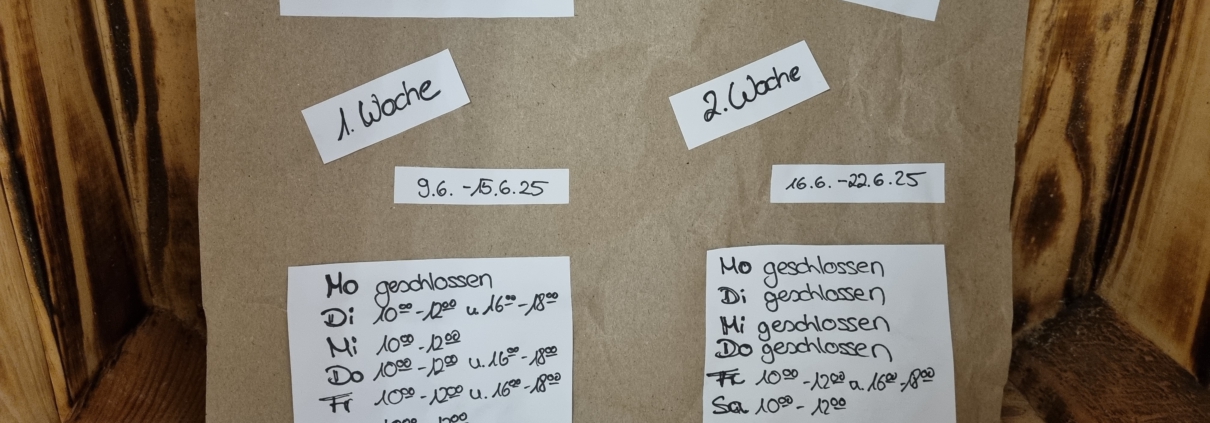 1. Woche
9.6. - 15.6.25
Mo geschlossen
Di 10⁰⁰ - 12⁰⁰ u. 16⁰⁰ - 18⁰⁰
Mi 10⁰⁰ - 12⁰⁰
Do 10⁰⁰ - 12⁰⁰ u. 16⁰⁰ - 18⁰⁰
Fr 10⁰⁰ - 12⁰⁰ u. 16⁰⁰ - 18⁰⁰
2. Woche
16.6. - 22.6.25
Mo geschlossen
Di geschlossen
Mi geschlossen
Do geschlossen
Fr 10⁰⁰ - 12⁰⁰ u. 16⁰⁰ - 18⁰⁰
Sa 10⁰⁰ - 12⁰⁰